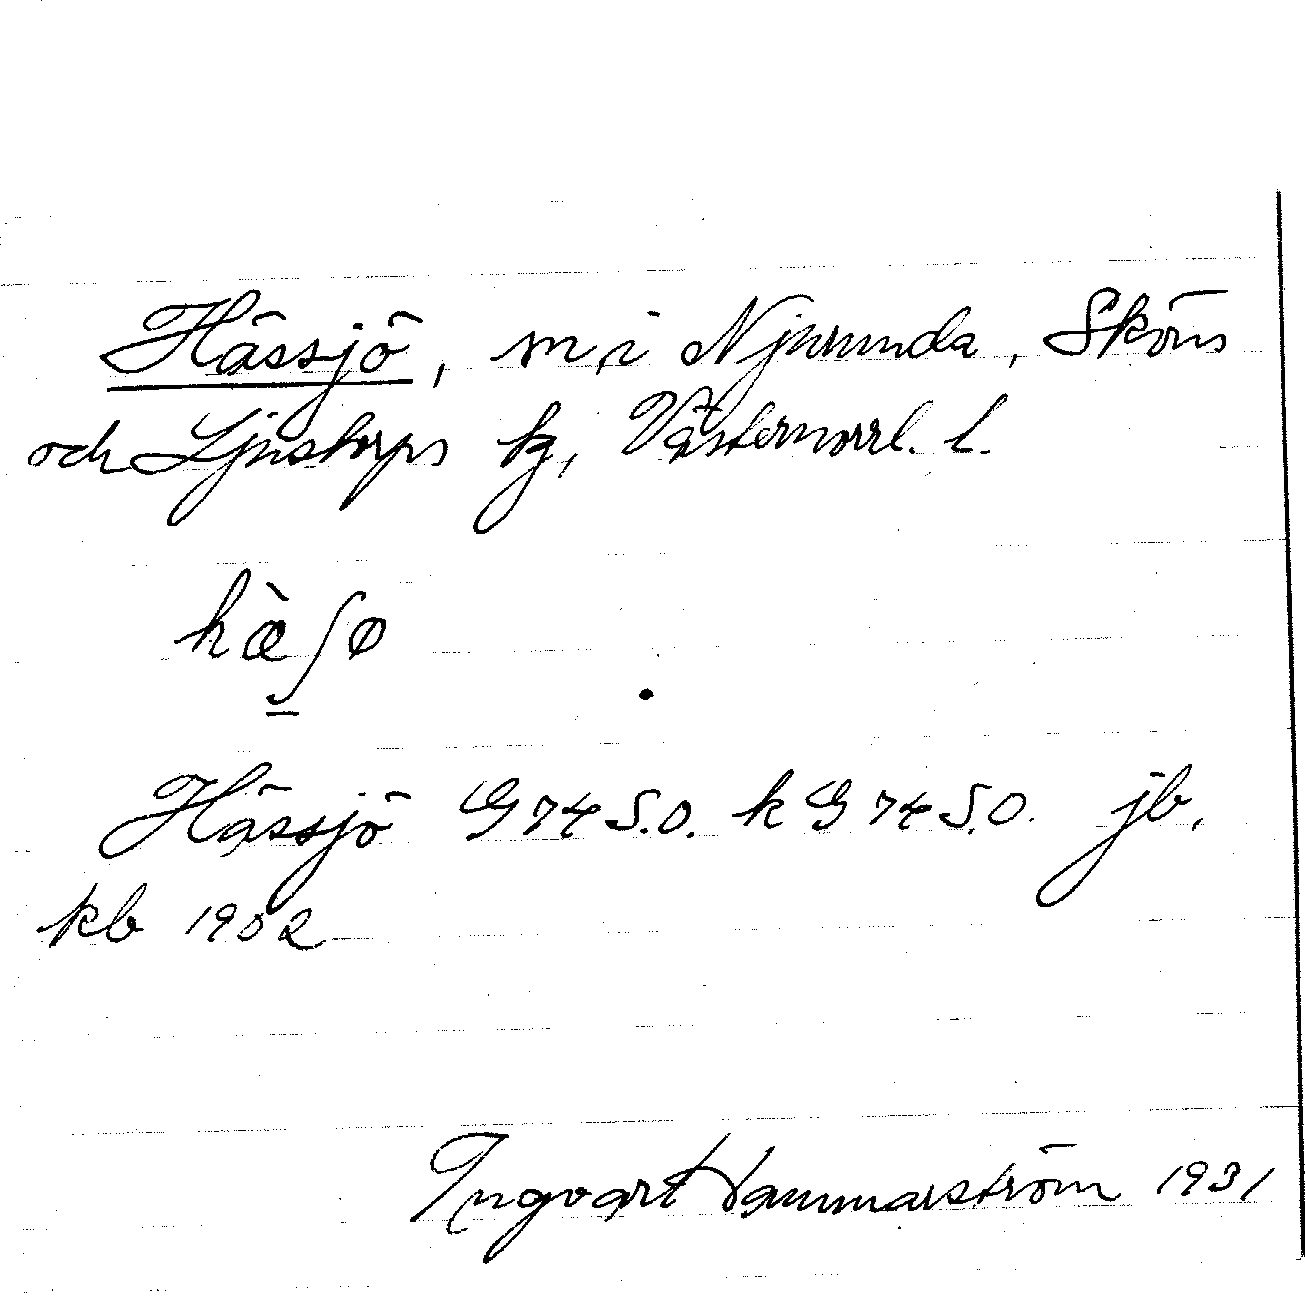 Hässjö, sn, i Njurunda, Sköns
och Ljustorps tg, Västernorrl. l.
hæ̀ʃø
Hässjö G74S.O. k G74S.O. jb.
kb 1902
Ingvart Hammarström 1931